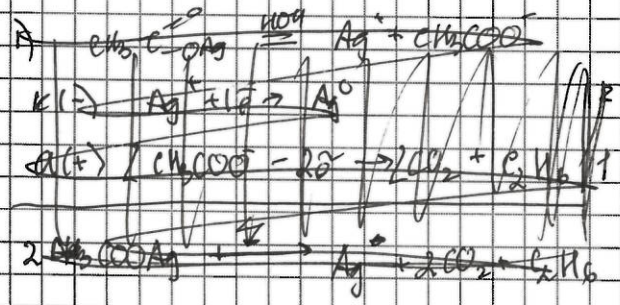 CH3 C =O OAg HOH ⇌ Ag+ + CH3COO-
K(-) Ag+ + 1ē → Ag0 2
a(+) 2 CH3COO- - 2ē → 2CO2 + C2H6 1
2 CH3COOAg + → Ag + 2CO2 + C2H6